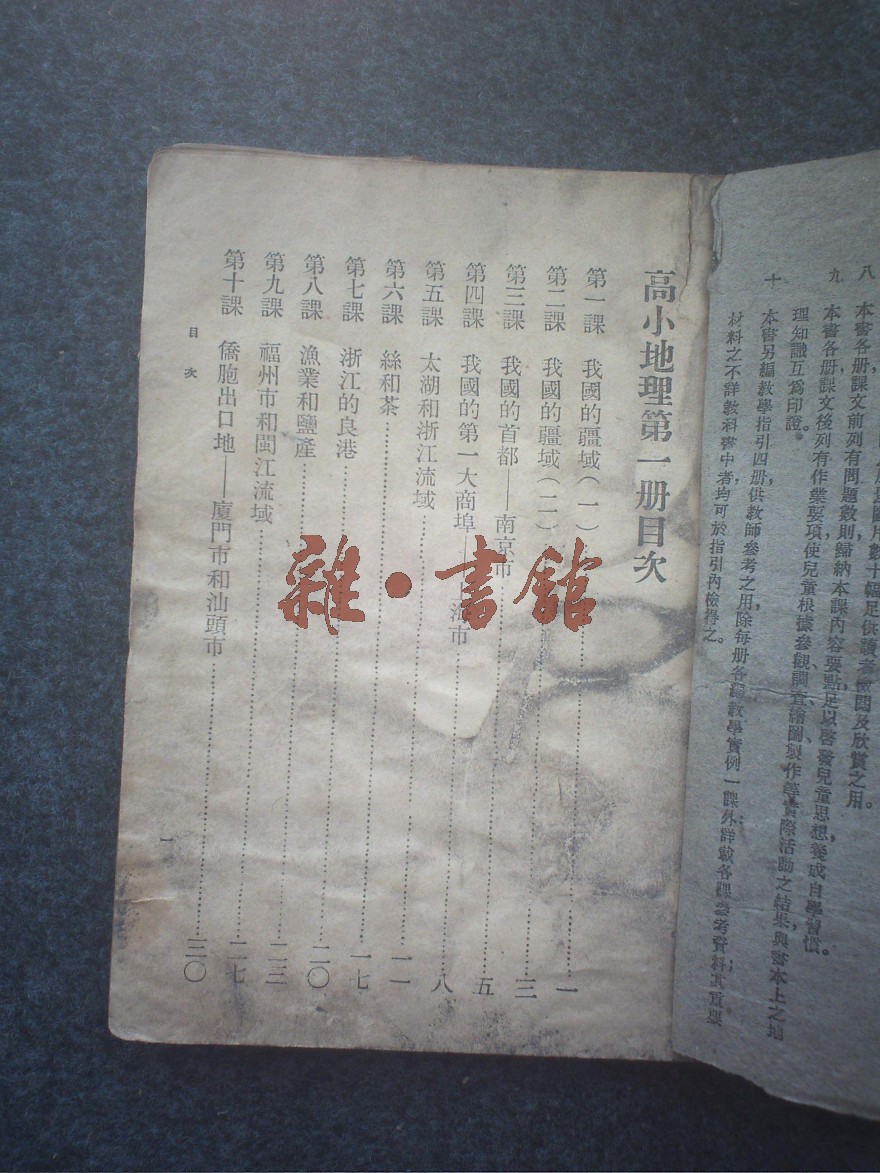 八 本書各册課文前列有問題數則歸納本課內容要點足以啓發兒童思想養成自學習慣。
九 本書各册課文後列有作業要項使兒童根據參觀、調查、繪圖、製作等實際活動之結果與書本上之地
理知識互爲印證。
十 本書另編教學指引四册，供教師參考之用，除每册各編教學實例一課外，詳載各課參考資料；其重要
材料之不詳教科書中者，均可於指引內檢得之。
高小地理第一册目次
第一課 我國的疆域（一）……一
第二課 我國的疆域（二）……三
第三課 我國的首都——南京市……五
第四課 我國的第一大商埠——上海市……八
第五課 太湖和浙江流域……一一
第六課 絲和茶……一七
第七課 浙江的良港……二〇
第八課 漁業和鹽產……二三
第九課 福州市和閩江流域……二七
第十課 僑胞出口地——廈門市和汕頭市……三〇
目次
一
雜·書館